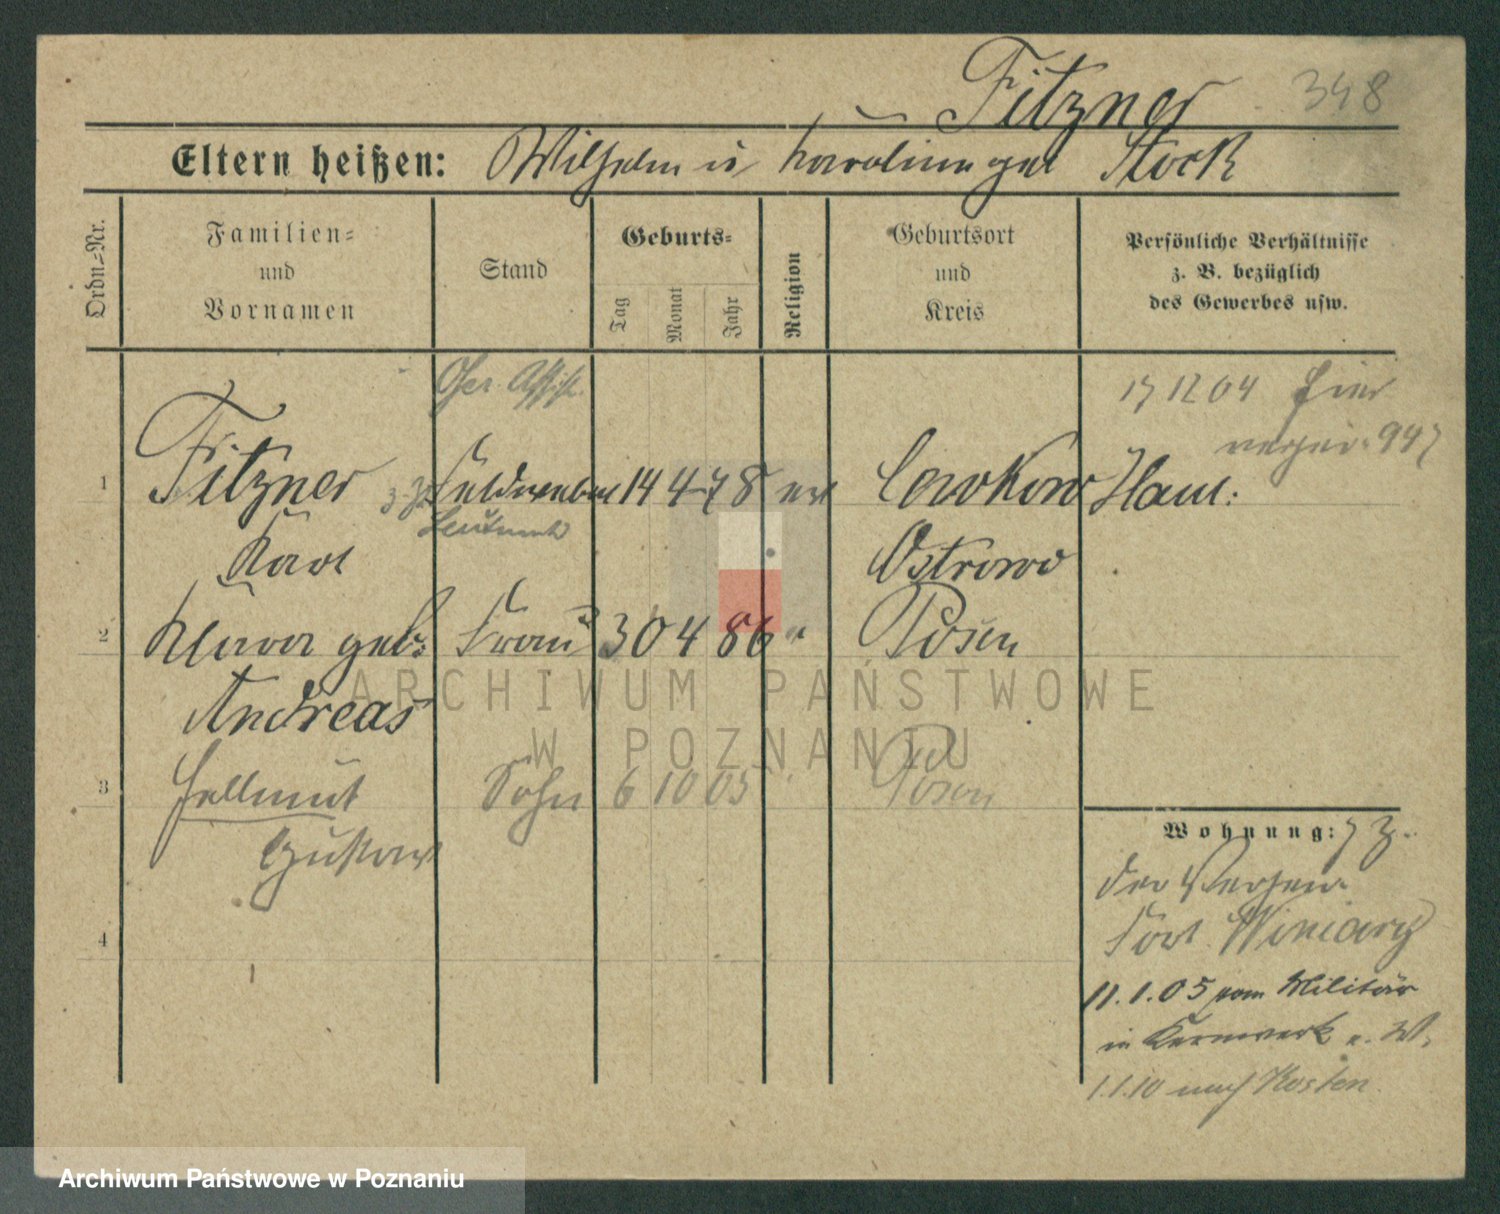 Fitzner 348
Eltern heißen: Wilhelm u Karoline geb Stock
Ordn=Nr.
Familien= und Vornamen
Stand
Geburts=
Tag Monat Jahr
Religion
Geburtsort und Kreis
Persönliche Verhältnisse z. B. bezüglich des Gewerbes usw.
17 12 04 hier
947
1 Fitzner Feldwebel 14 4 78 ev Haut:
Leutnant
Karl Ostrowo
2 Klara geb: Frau 30 4 86 " Posen
Andreas
3 Hellmut Sohn 6 10 05 " Posen
Gustav
Wohnung:
4
Fort Winiary
11.1.05 vom Militär
in Kernwerk
1.1.10 nach Kosten
ARCHIWUM PAŃSTWOWE
W POZNANIU
Archiwum Państwowe w Poznaniu